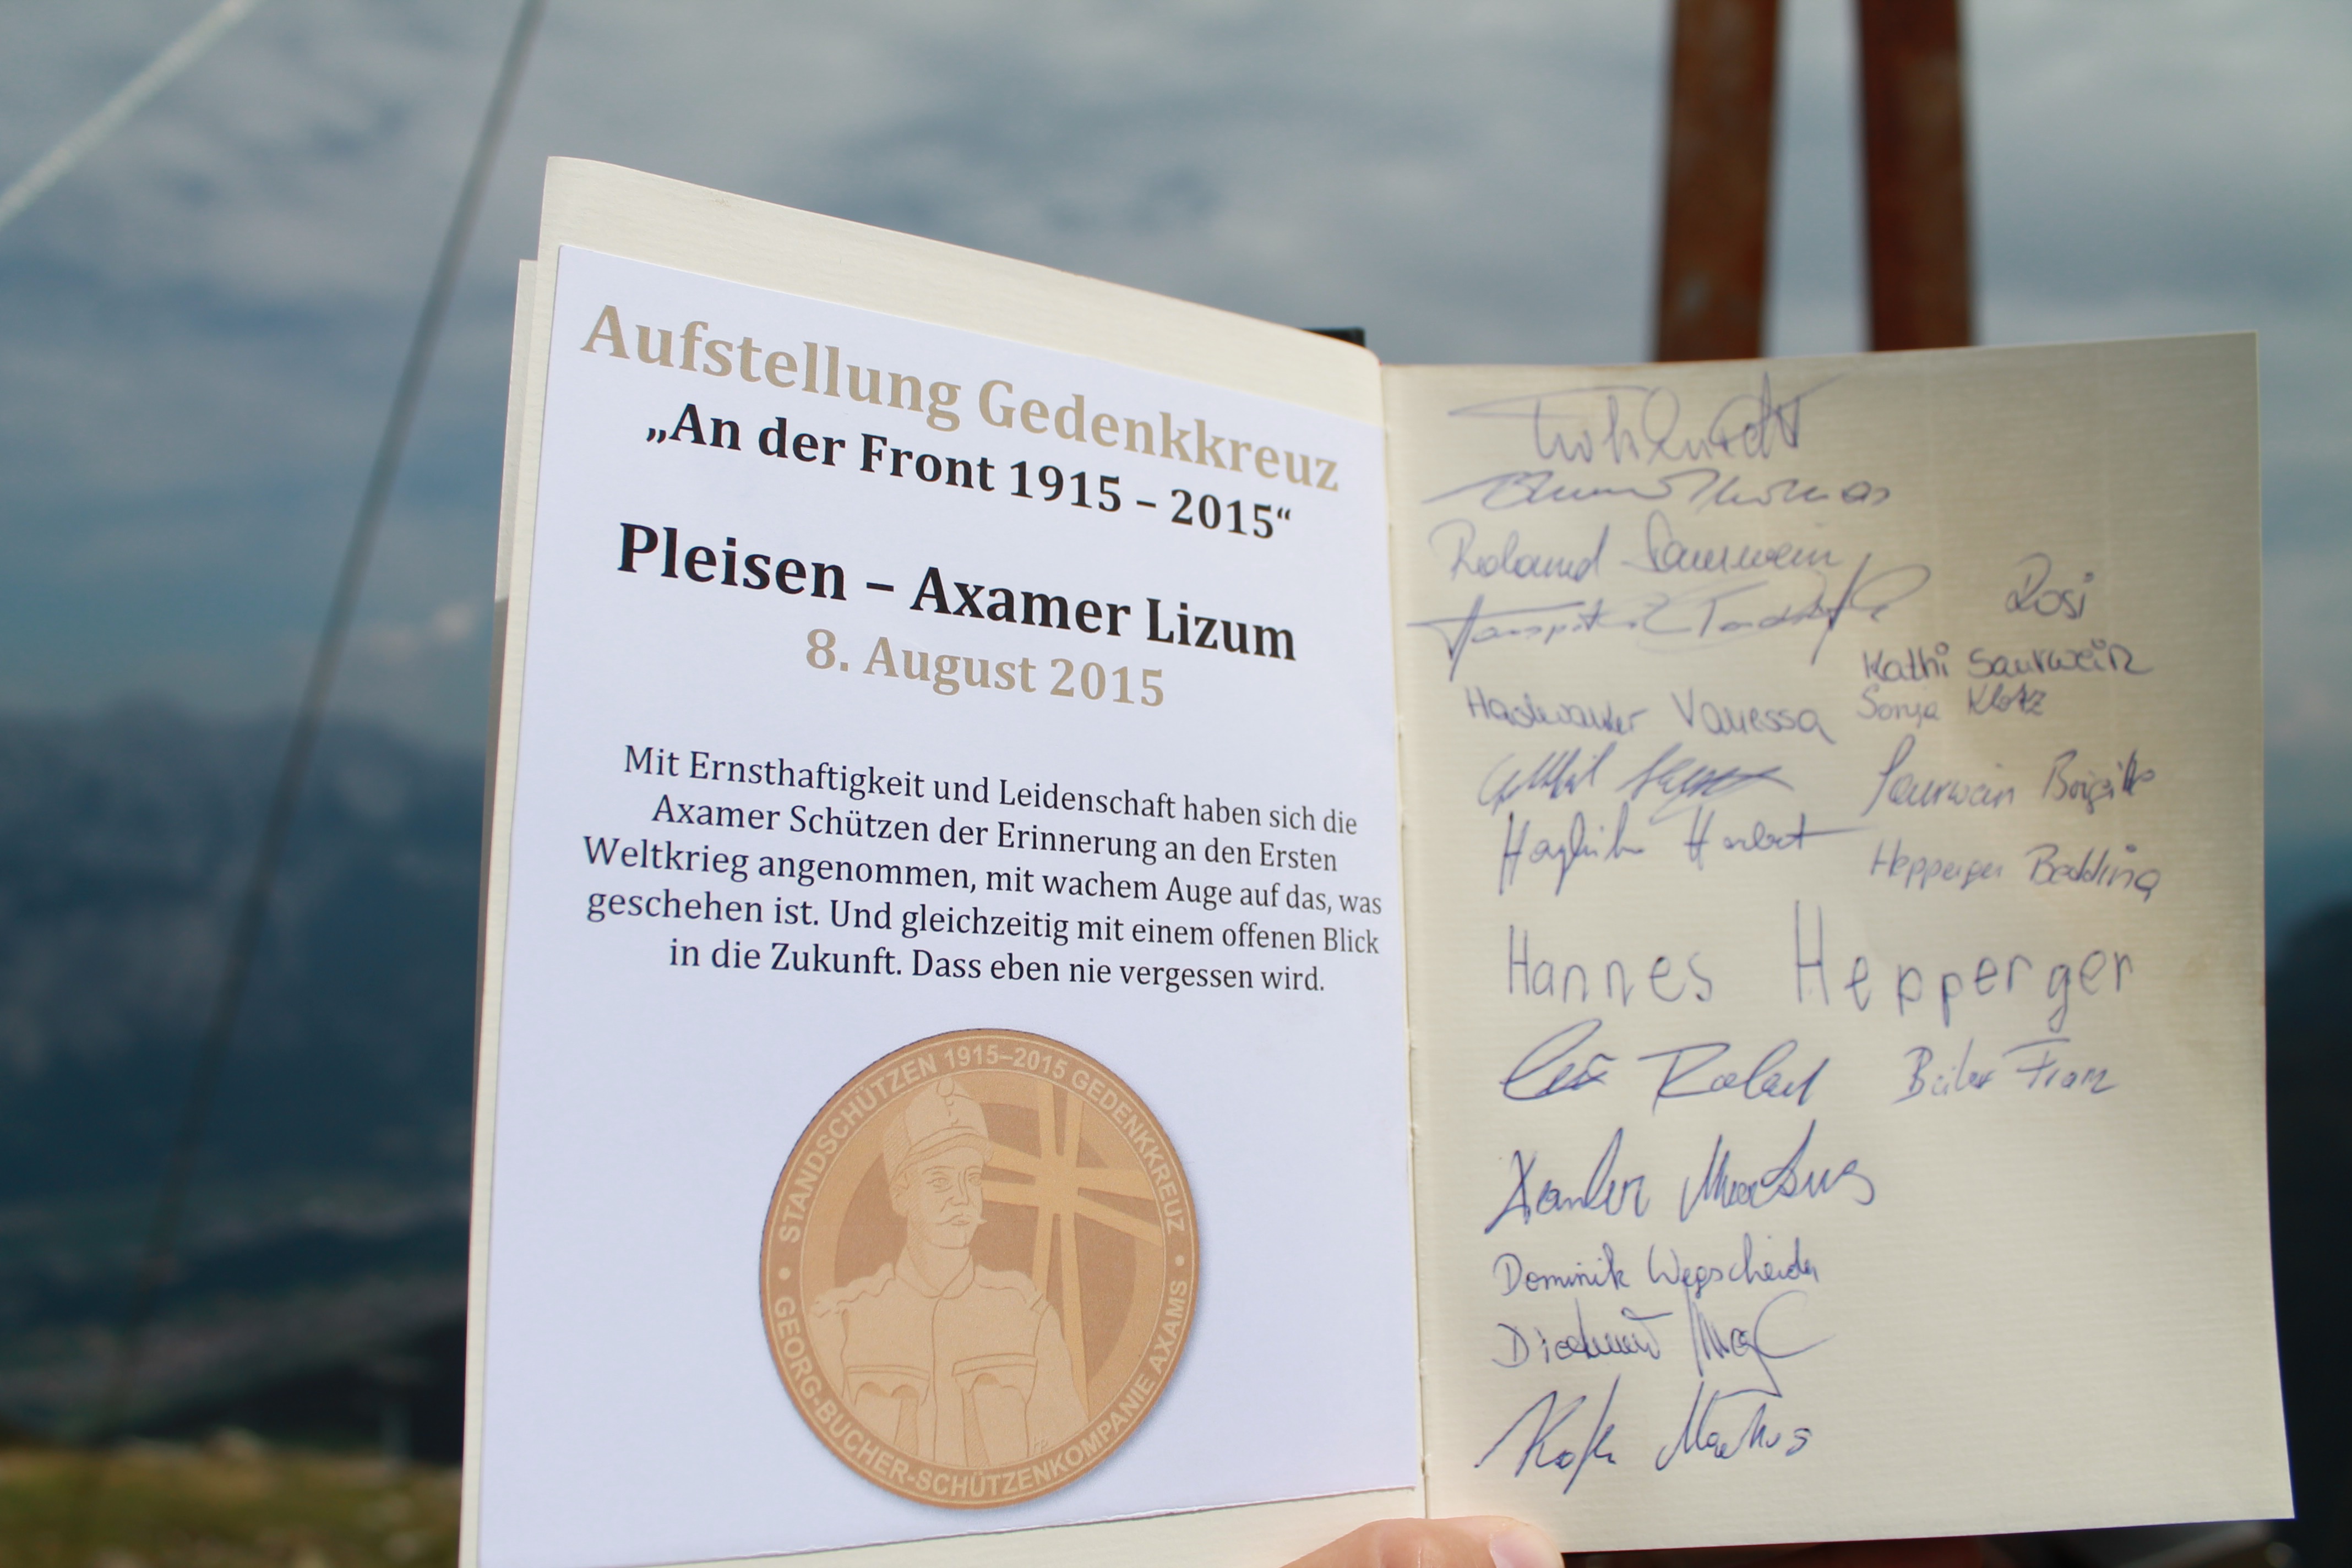 Aufstellung Gedenkkreuz
„An der Front 1915 – 2015“
Pleisen – Axamer Lizum
8. August 2015
Mit Ernsthaftigkeit und Leidenschaft haben sich die
Axamer Schützen der Erinnerung an den Ersten
Weltkrieg angenommen, mit wachem Auge auf das, was
geschehen ist. Und gleichzeitig mit einem offenen Blick
in die Zukunft. Dass eben nie vergessen wird.
STANDSCHÜTZEN 1915–2015 GEDENKKREUZ
GEORG-BUCHER-SCHÜTZENKOMPANIE AXAMS
Thomas
Roland Saurwein
Rosi
Kathi Saurwein
Vanessa
Sonja Klotz
Saurwein Brigitte
Herbert
Hepperger
Hannes Hepperger
Roland
Franz
Markus
Dominik Wegscheider
Markus